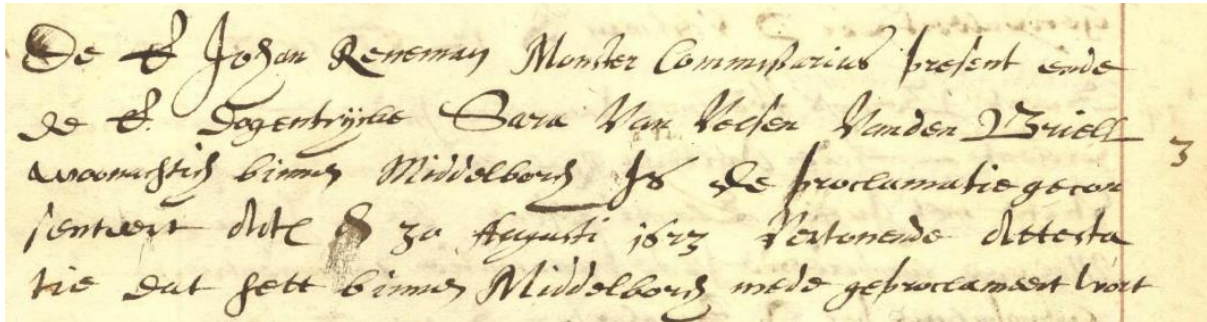 De E Johan Reneman Monster Commissarius present ende
de E. dogentrijcke Sara Van Velsen Vanden Briell
woonachtich binnen Middelborch Is de proclamatie gecon 3
senteert den 30 Augusti 1623 Vertonende Attesta
tie dat hett binnen Middelborch mede geproclameert wort